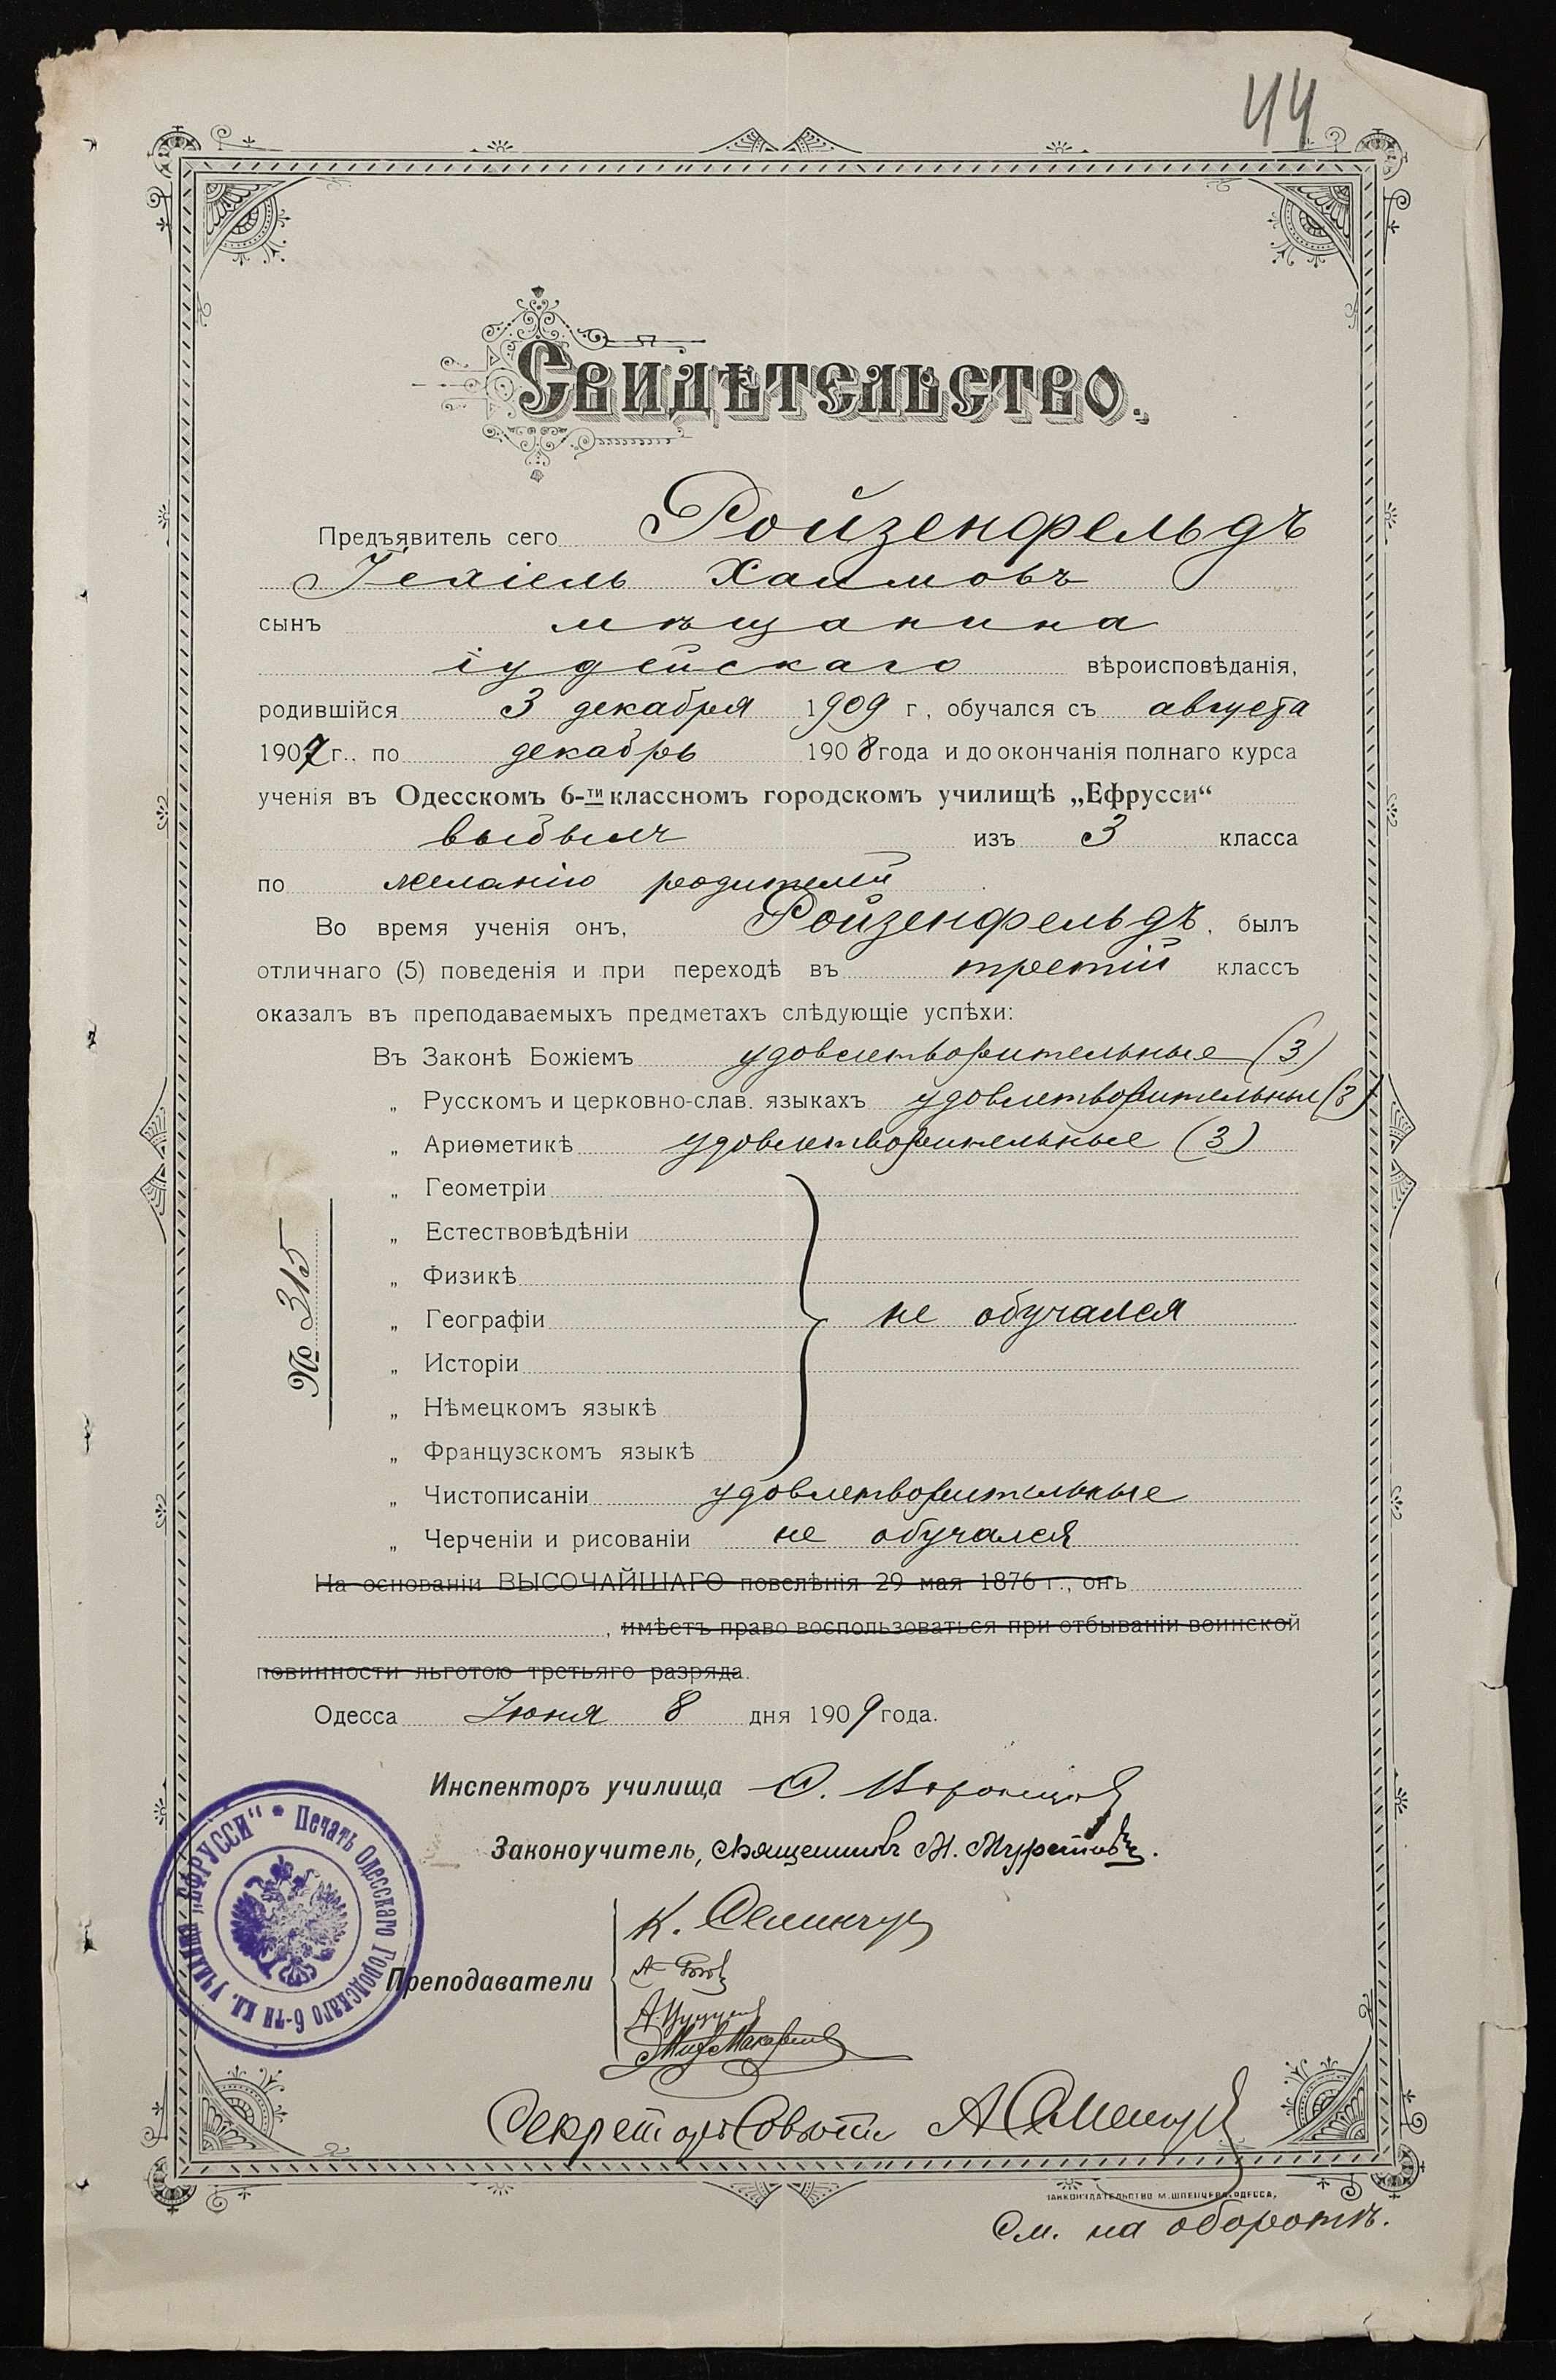 44
Свидѣтельство.
Предъявитель сего Ройзенфельдъ
Іехіель Хаимовъ
сынъ мѣщанина
іудейскаго вѣроисповѣданія,
родившійся 3 декабря 1909 г., обучался съ августа
1907 г., по декабрь 1908 года и до окончанія полнаго курса
ученія въ Одесскомъ 6-ти классномъ городскомъ училищѣ „Ефрусси“
выбылъ изъ 3 класса
по желанію родителей
Во время ученія онъ, Ройзенфельдъ, былъ
отличнаго (5) поведенія и при переходѣ въ третій классъ
оказалъ въ преподаваемыхъ предметахъ слѣдующіе успѣхи:
Въ Законѣ Божіемъ удовлетворительные (3)
„ Русскомъ и церковно-слав. языкахъ удовлетворительные (3)
„ Ариѳметикѣ удовлетворительные (3)
„ Геометріи
„ Естествовѣдѣніи
„ Физикѣ
„ Географіи не обучался
„ Исторіи
„ Нѣмецкомъ языкѣ
„ Французскомъ языкѣ
№ 315
„ Чистописаніи удовлетворительные
„ Черченіи и рисованіи не обучался
На основаніи ВЫСОЧАЙШАГО повелѣнія 29 мая 1876 г., онъ
, имѣетъ право воспользоваться при отбываніи воинской
повинности льготою третьяго разряда.
Одесса Іюня 8 дня 1909 года.
Инспекторъ училища
Законоучитель, Священникъ Н. Муретовъ.
К.
Преподаватели
Печать Одесскаго Городскаго 6-ти кл. училища „ЕФРУССИ“ *
Секретарь Совѣта
См. на оборотѣ.